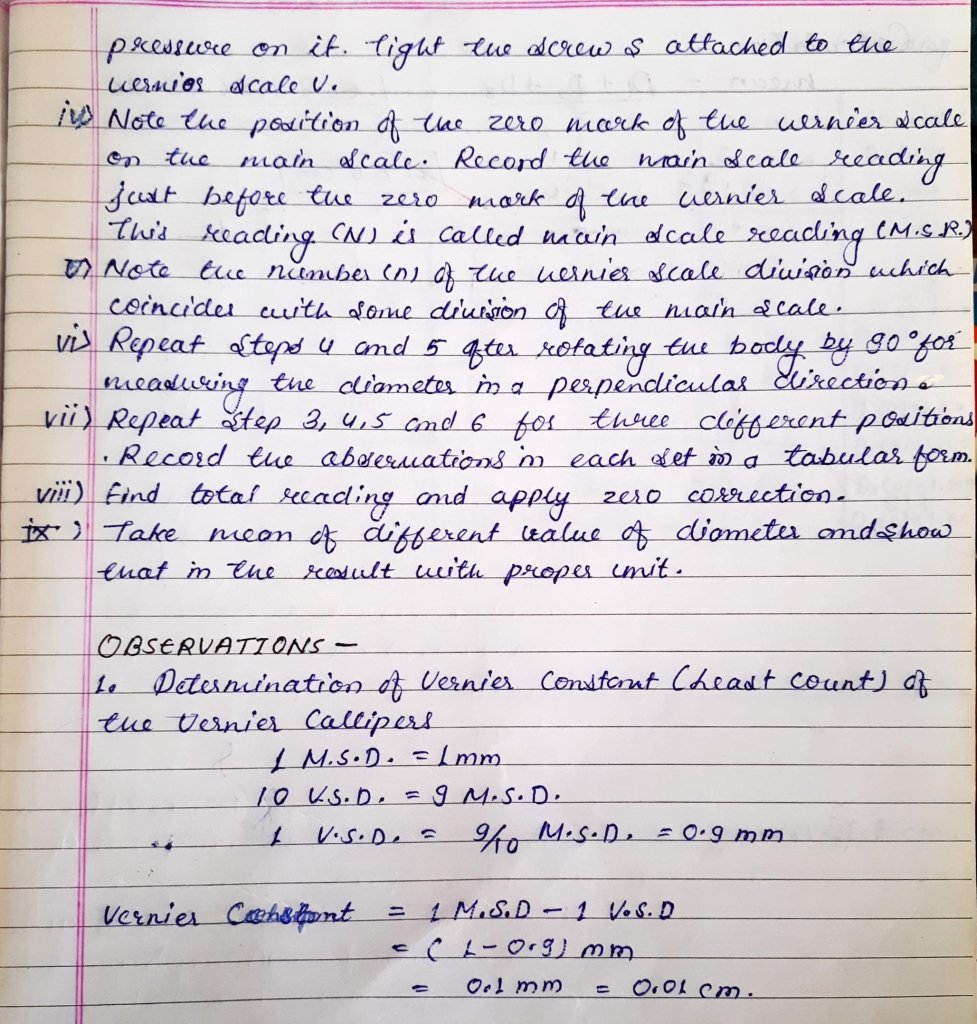 pressure on it. Tight the screw S attached to the
vernier scale V.
iv) Note the position of the zero mark of the vernier scale
on the main scale. Record the main scale reading
just before the zero mark of the vernier scale.
This reading (N) is called main scale reading (M.S.R.)
v) Note the number (n) of the vernier scale division which
coincides with some division of the main scale.
vi) Repeat steps 4 and 5 after rotating the body by 90° for
measuring the diameter in a perpendicular direction.
vii) Repeat step 3, 4, 5 and 6 for three different positions
. Record the observations in each set in a tabular form.
viii) Find total reading and apply zero correction.
ix) Take mean of different value of diameter and show
that in the result with proper unit.
OBSERVATIONS —
1. Determination of Vernier Constant (Least count) of
the Vernier Callipers
1 M.S.D. = 1mm
10 V.S.D. = 9 M.S.D.
∴ 1 V.S.D. = 9/10 M.S.D. = 0.9 mm
Vernier Constant = 1 M.S.D - 1 V.S.D
= (1-0.9) mm
= 0.1 mm = 0.01 cm.